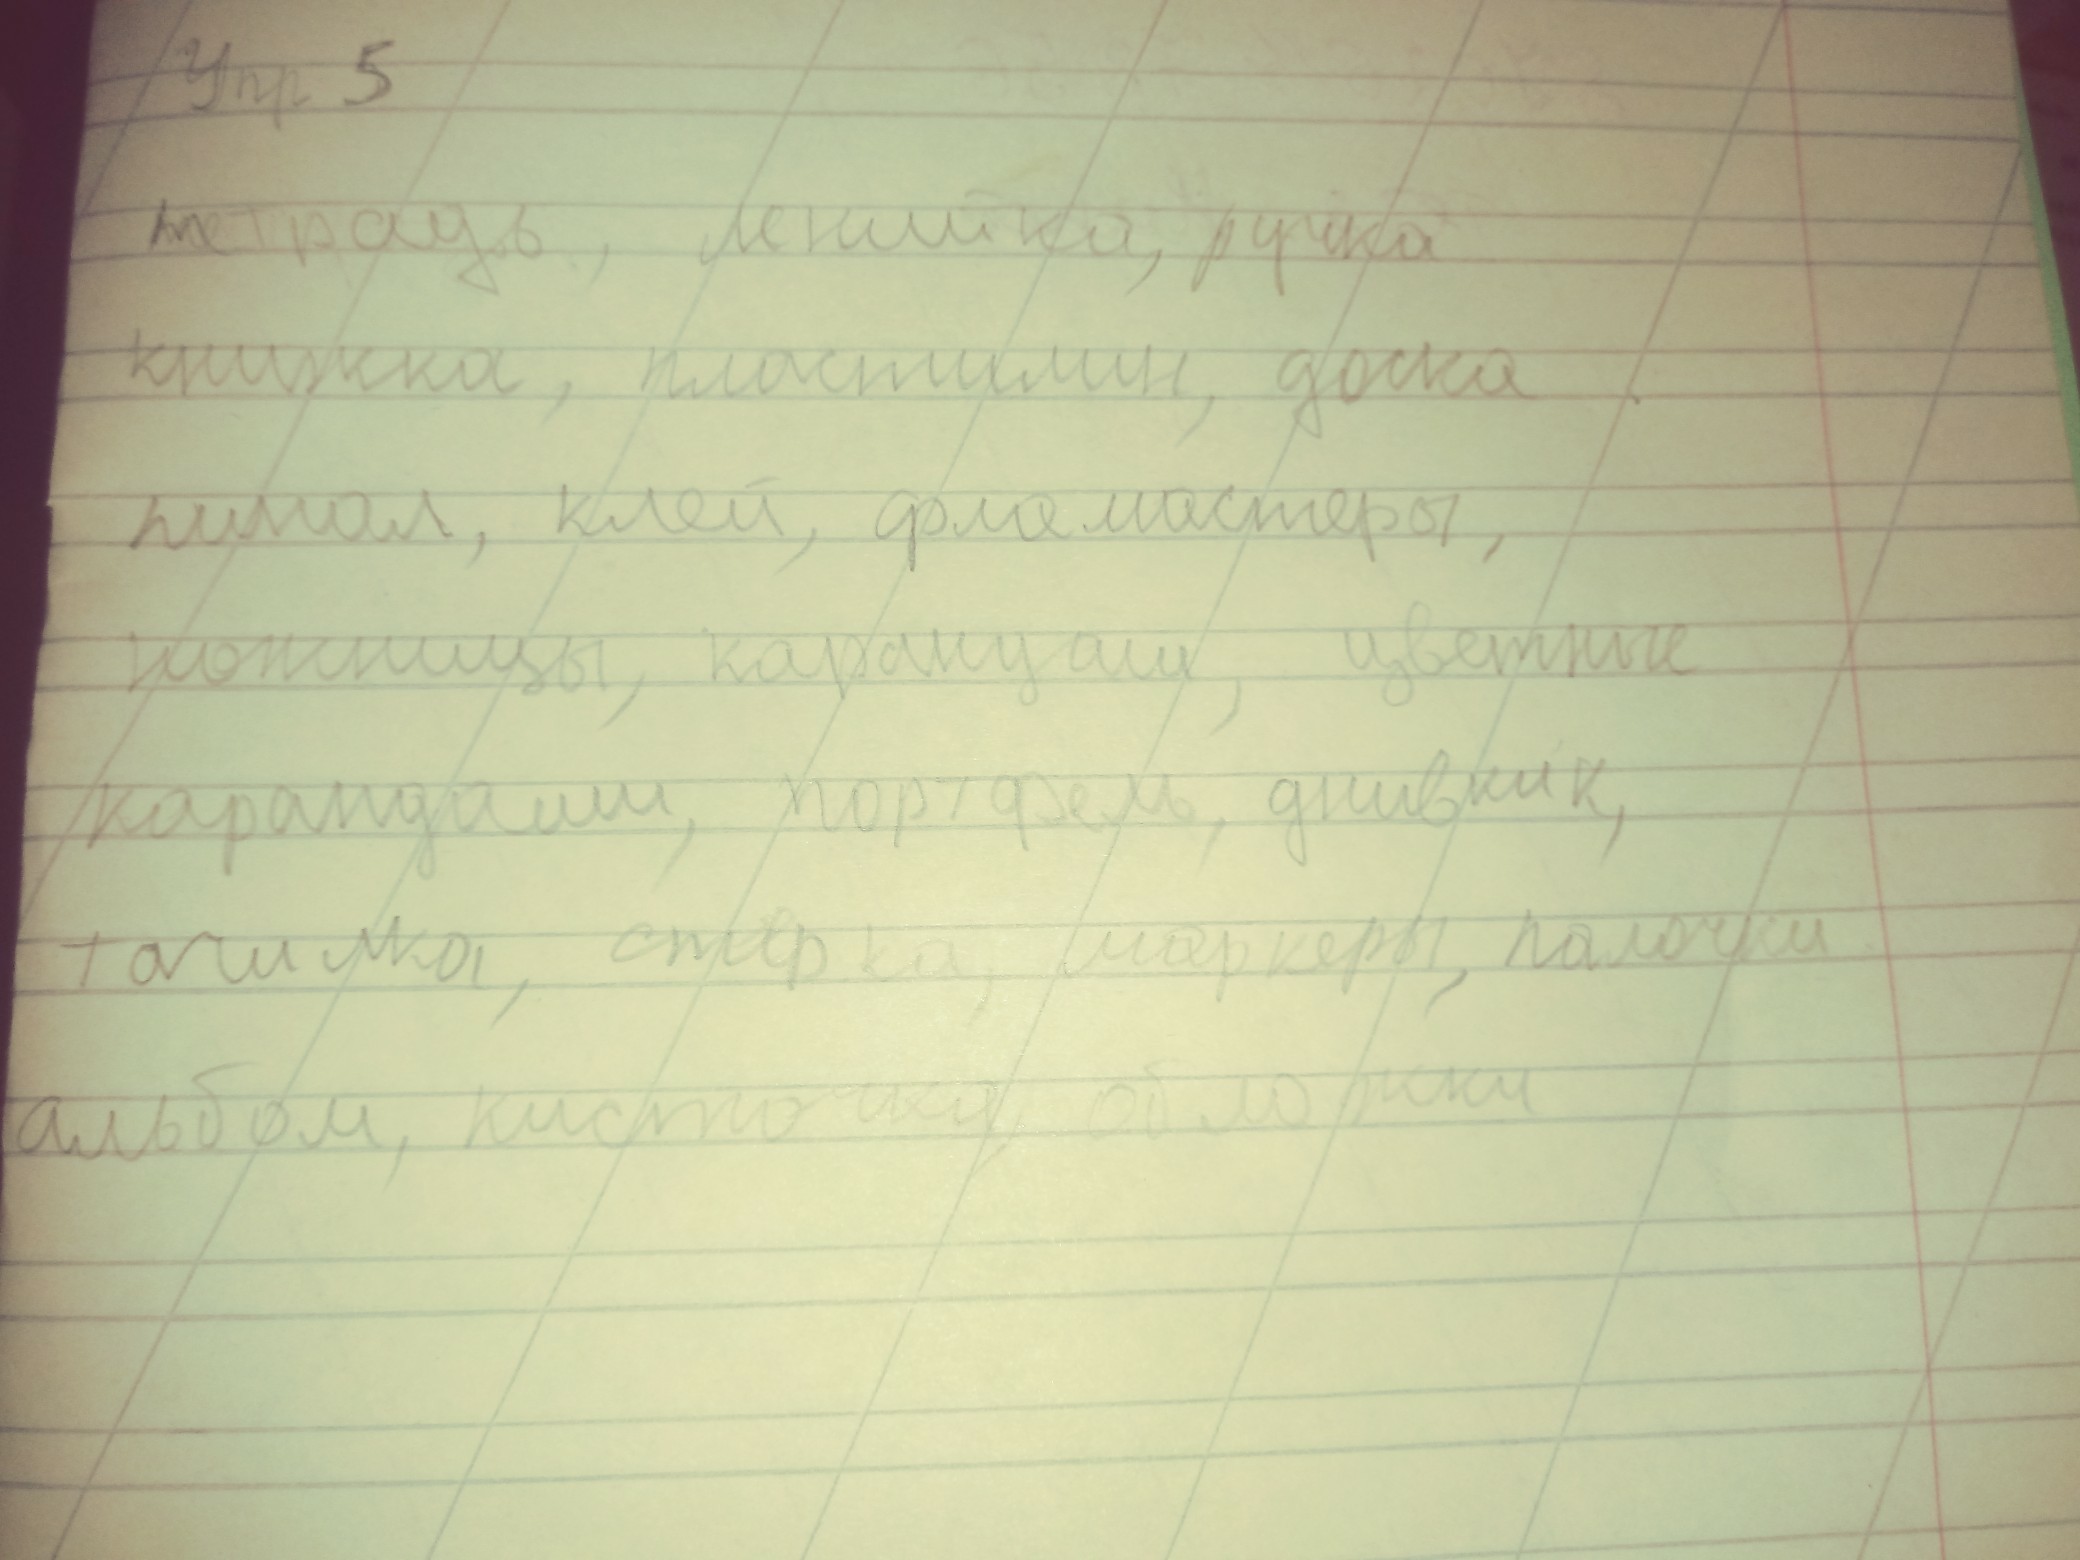 Упр 5
тетрадь, ленийка, ручка
книжка, пластилин, доска
пинал, клей, фламастеры,
ножницы, карандаш, цветные
карандаши, портфель,днивник,
точилка, стирка, маркеры, палочки
альбом, кисточки, обложки